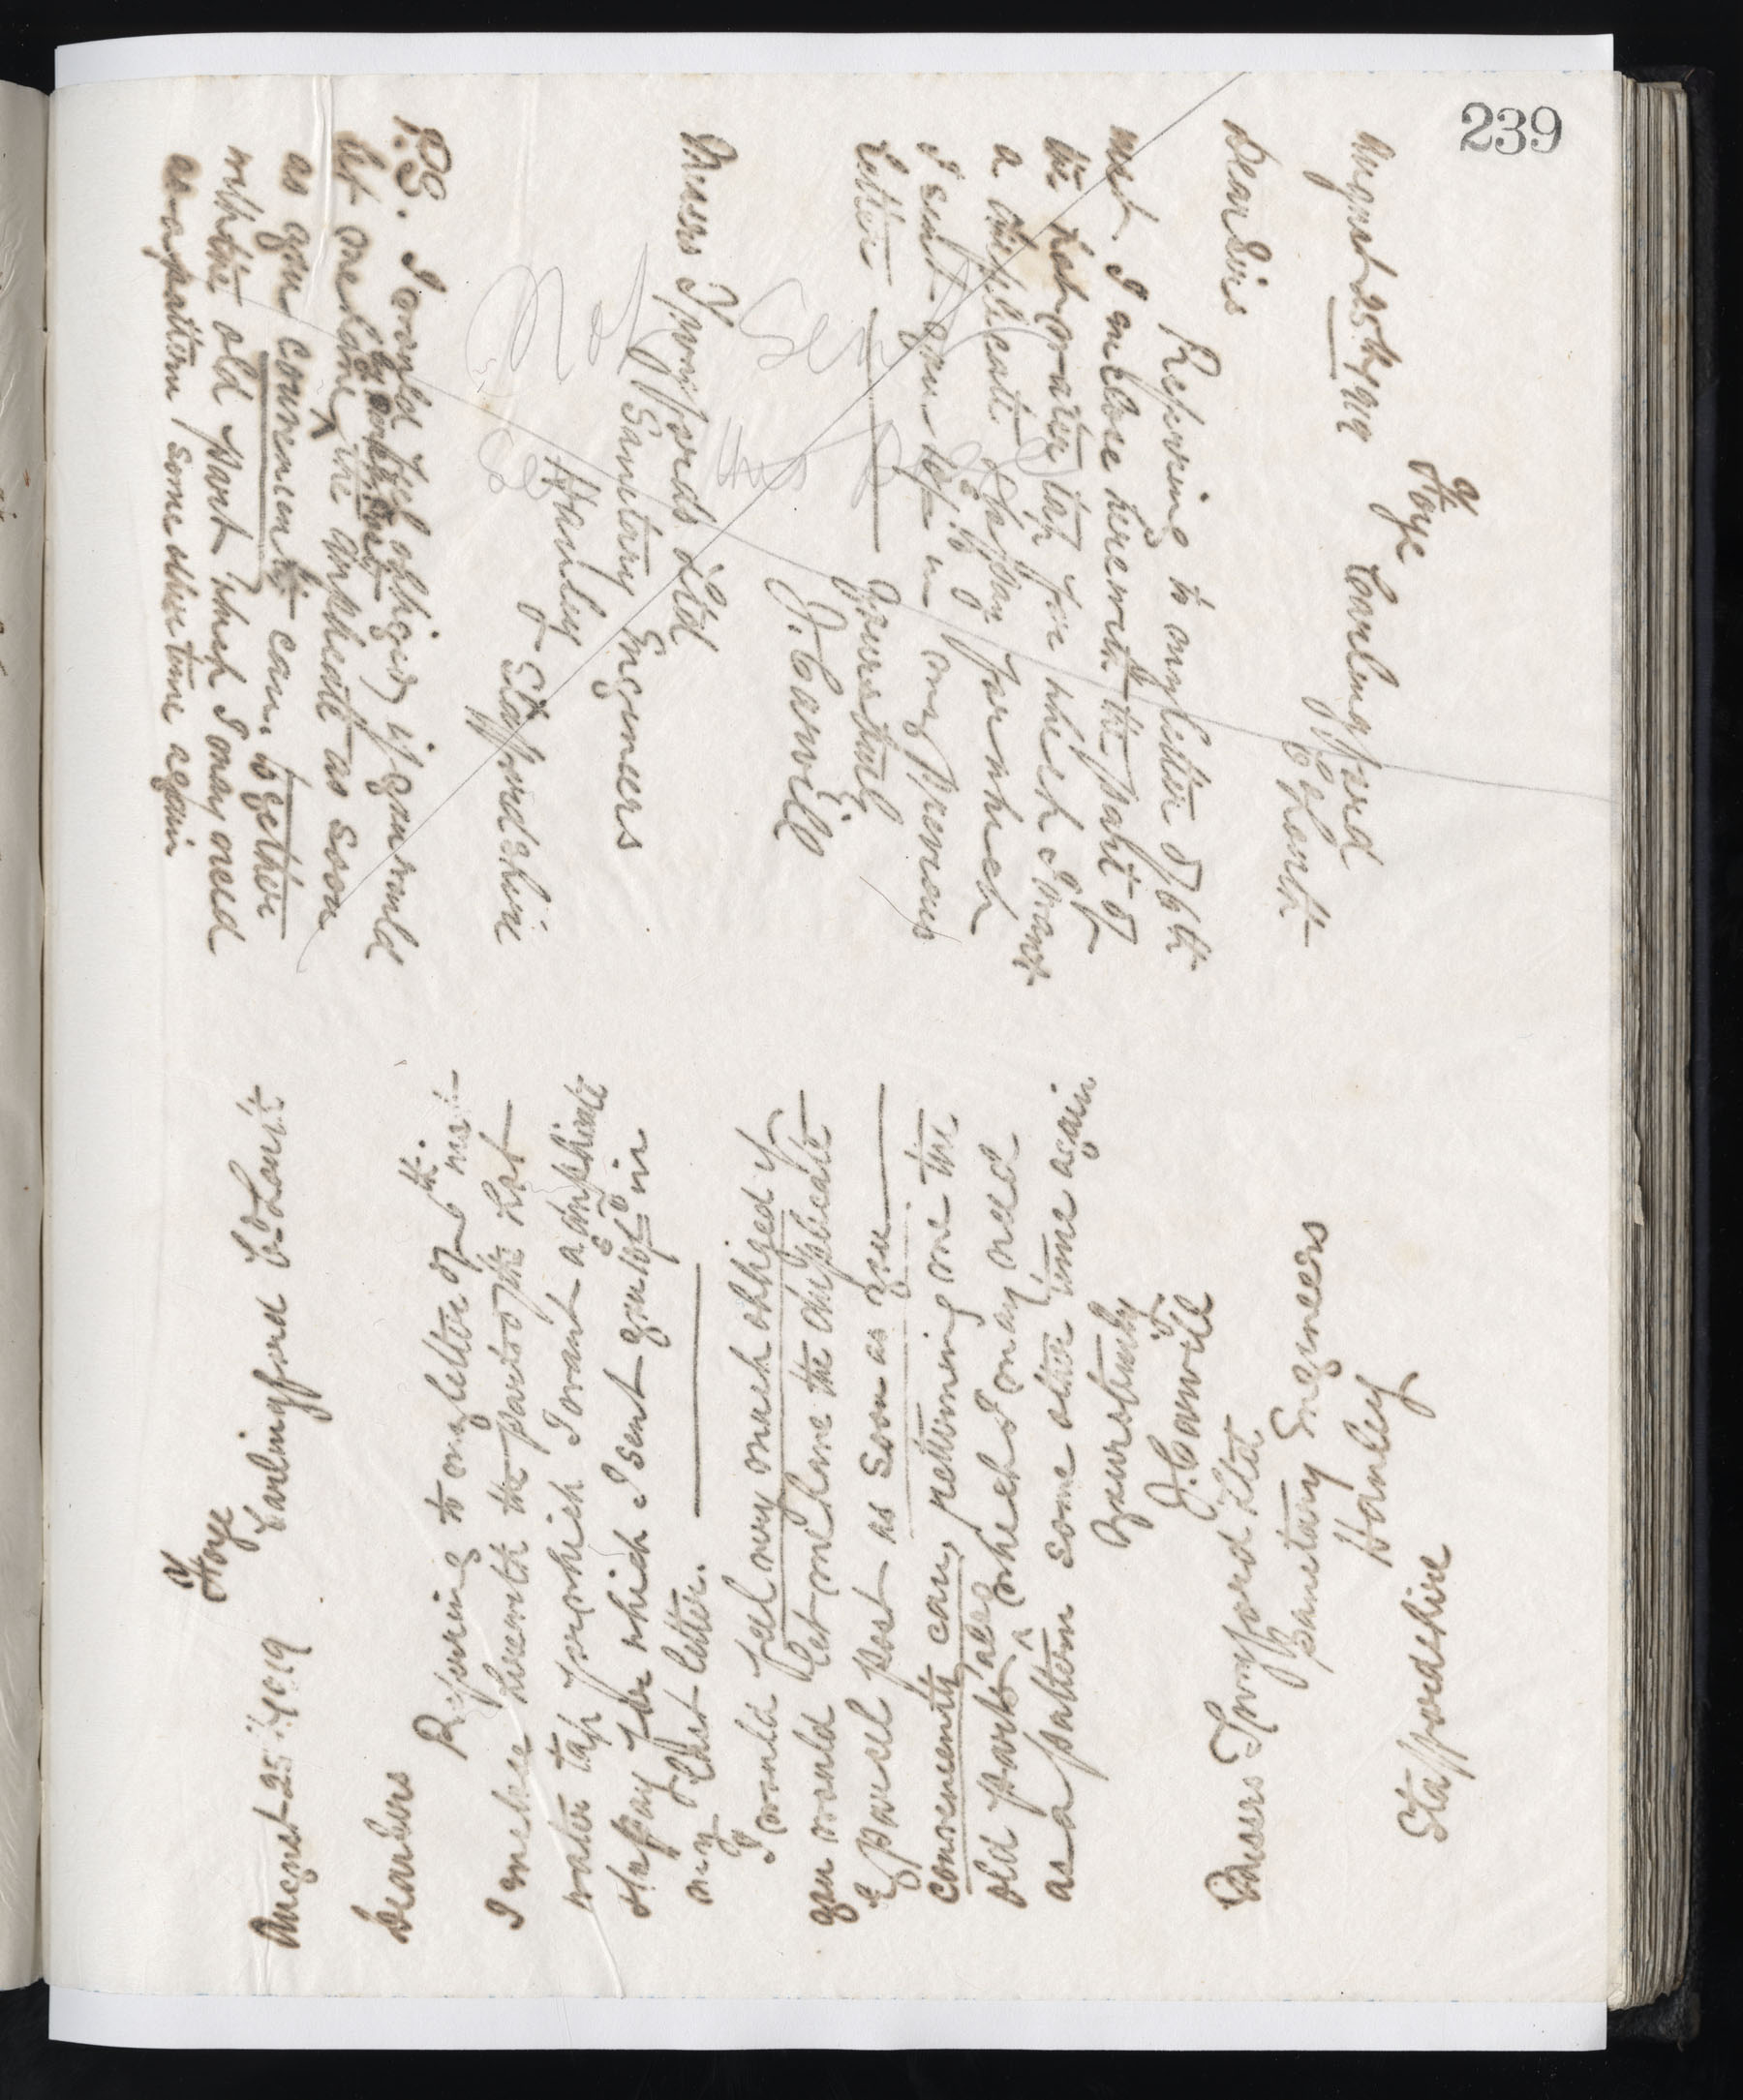 239
Foye
Carlingford
Co Louth
August 25th 1919
Dear Sirs
Refering to my letter of 6th
inst. I enclose herewith the part of
the hot water tap for which I want
a duplicate & to pay for which
I sent you 10/- in my previous
letter
Yours truly
J. Carvill
Messrs Twyfords Ltd
Sanitary Engineers
Hanley
Staffordshire
P.S. I would feel obliged if you would
by parcel post
let me have ^ the duplicate as soon
as you conveniently can, together
with the old part which I may need
as a pattern some other time again
Foye
Carlingford Co Louth
August 25th 1919
Dear Sirs
Refering to my letter of 6th inst.
I enclose herewith the part of the hot
water tap for which I want a duplicate
& to pay for which I sent you 10/- in
my last letter.
I would feel very much obliged if
you would let me have the duplicate
by parcel post as soon as you
conveniently can, returning me the
old part also ^ which I may need
as a pattern some other time again
Yours truly
J. Carvill
Messrs Twyford Ltd
Sanitary Engineers
Hanley
Staffordshire